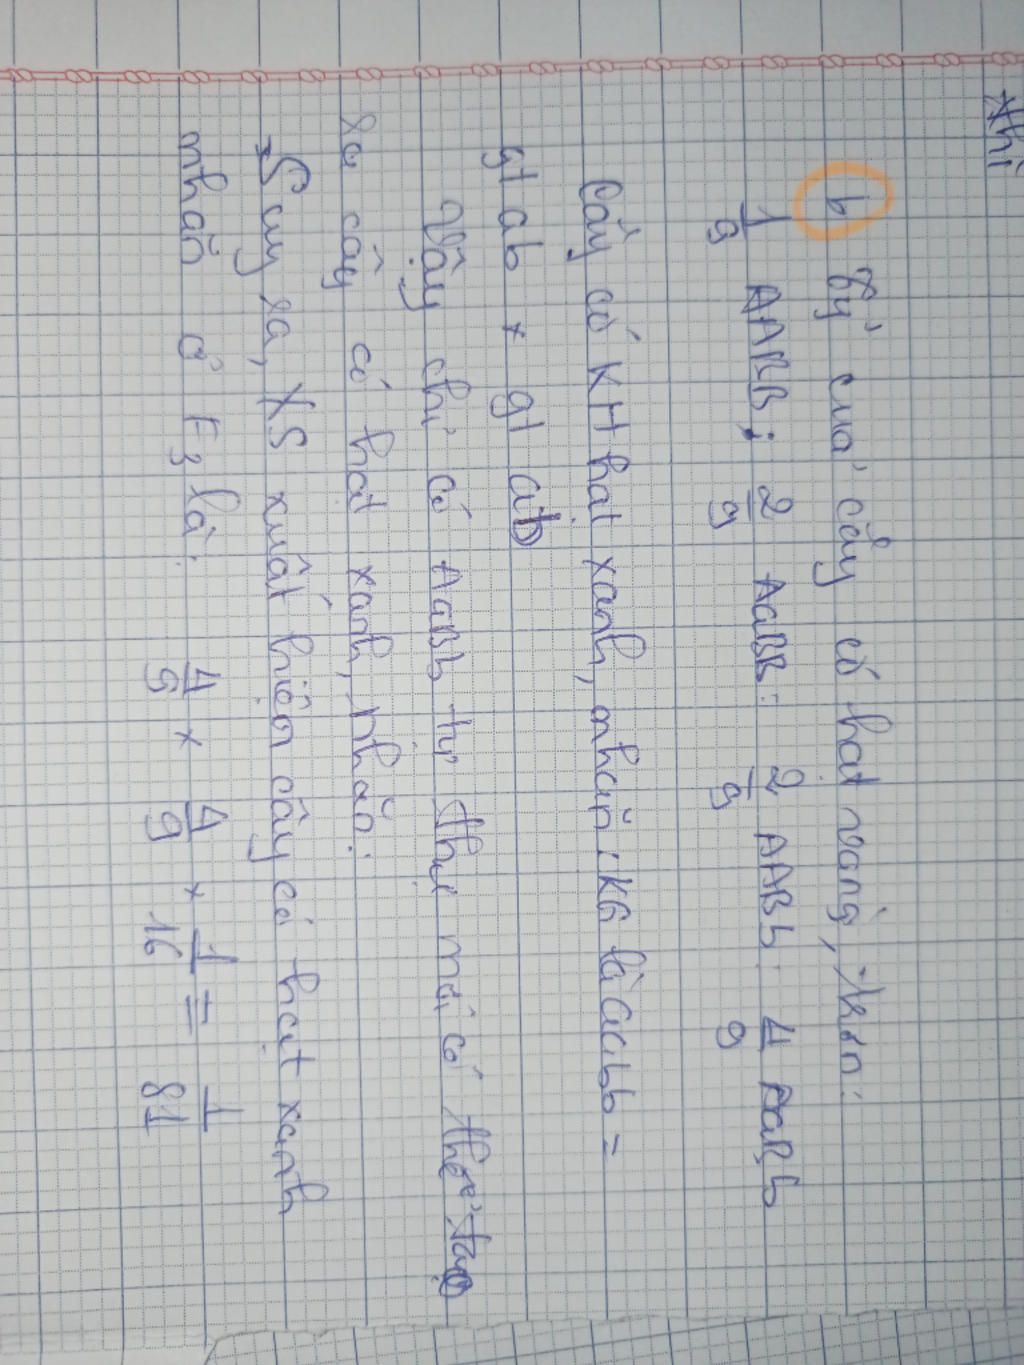 b Tỷ của cây có hạt vàng, trơn:
1/9 AABB; 2/9 AaBB: 2/9 AABb: 4/9 AaBb
Cây có KH hạt xanh, nhăn: KG là aabb =
gt ab × gt ab
Vậy chỉ có AaBb tự thụ mới có thể tạo
ra cây có hạt xanh, nhăn:
Suy ra, XS xuất hiện cây có hạt xanh
nhăn ở F3 là: 4/9 × 4/9 × 1/16 = 1/81